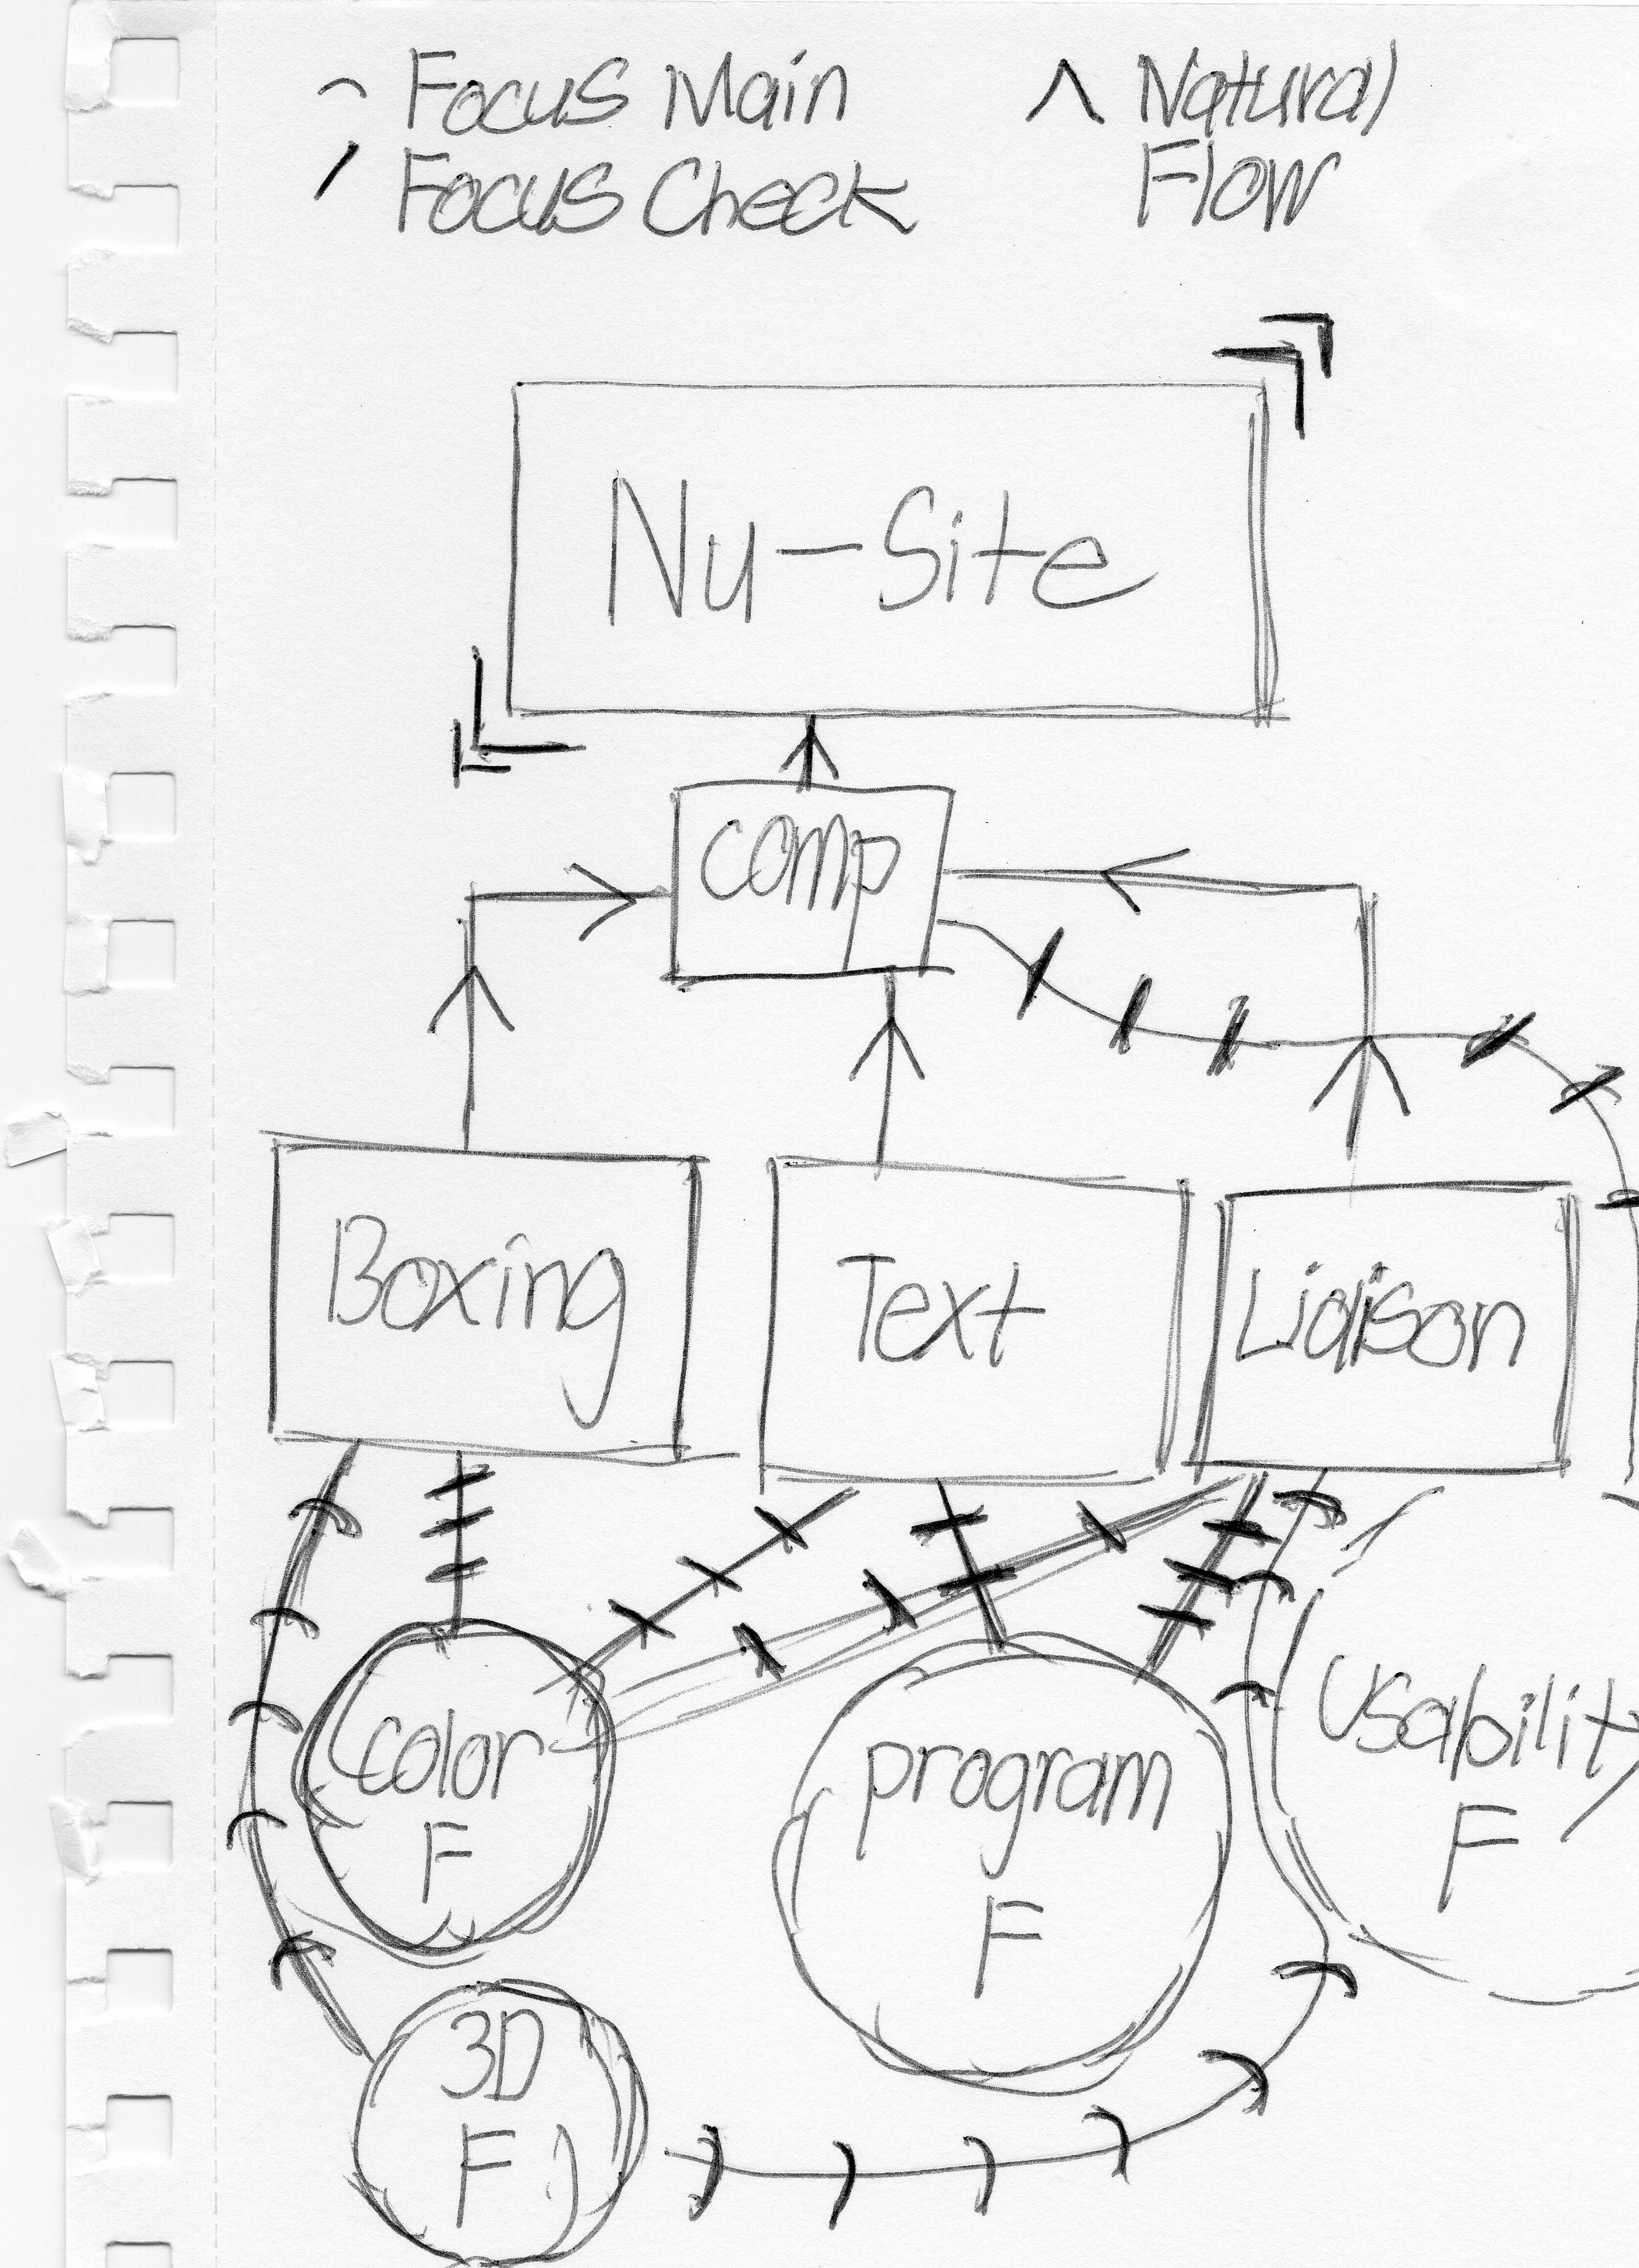 Focus Main
Focus Check
Natural
Flow
Nu-Site
comp
Boxing
Text
Liaison
color
F
program
F
Usability
F
3D
F